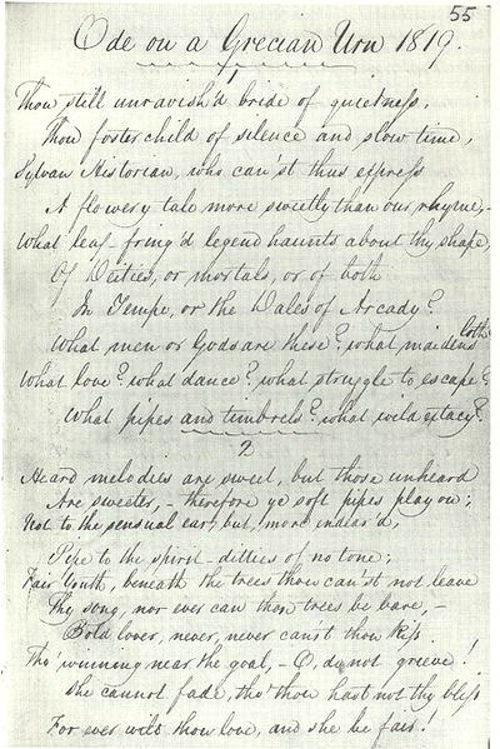 55
Ode on a Grecian Urn 1819.
1
Thou still unravish'd bride of quietness,
Thou foster child of silence and slow time,
Sylvan Historian, who can'st thus express
A flowery tale more sweetly than our rhyme,-
What leaf-fring'd legend haunts about thy shape,
Of Deities, or mortals, or of both
In Tempe, or the Dales of Arcady?
What men or Gods are these? what maidens loth?
What love? what dance? what struggle to escape?
What pipes and timbrels? what wild extacy?
2
Heard melodies are sweet, but those unheard
Are sweeter,- therefore ye soft pipes play on;
Not to the sensual ear, but, more indear'd,
Pipe to the spirit-ditties of no tone;
Fair Youth, beneath the trees thou can'st not leave
Thy song, nor ever can those trees be bare,-
Bold lover, never, never can'st thou kiss
Tho' winning near the goal,- O, do not grieve!
She cannot fade, tho' thou hast not thy bliss
For ever wilt thou love, and she be fair!